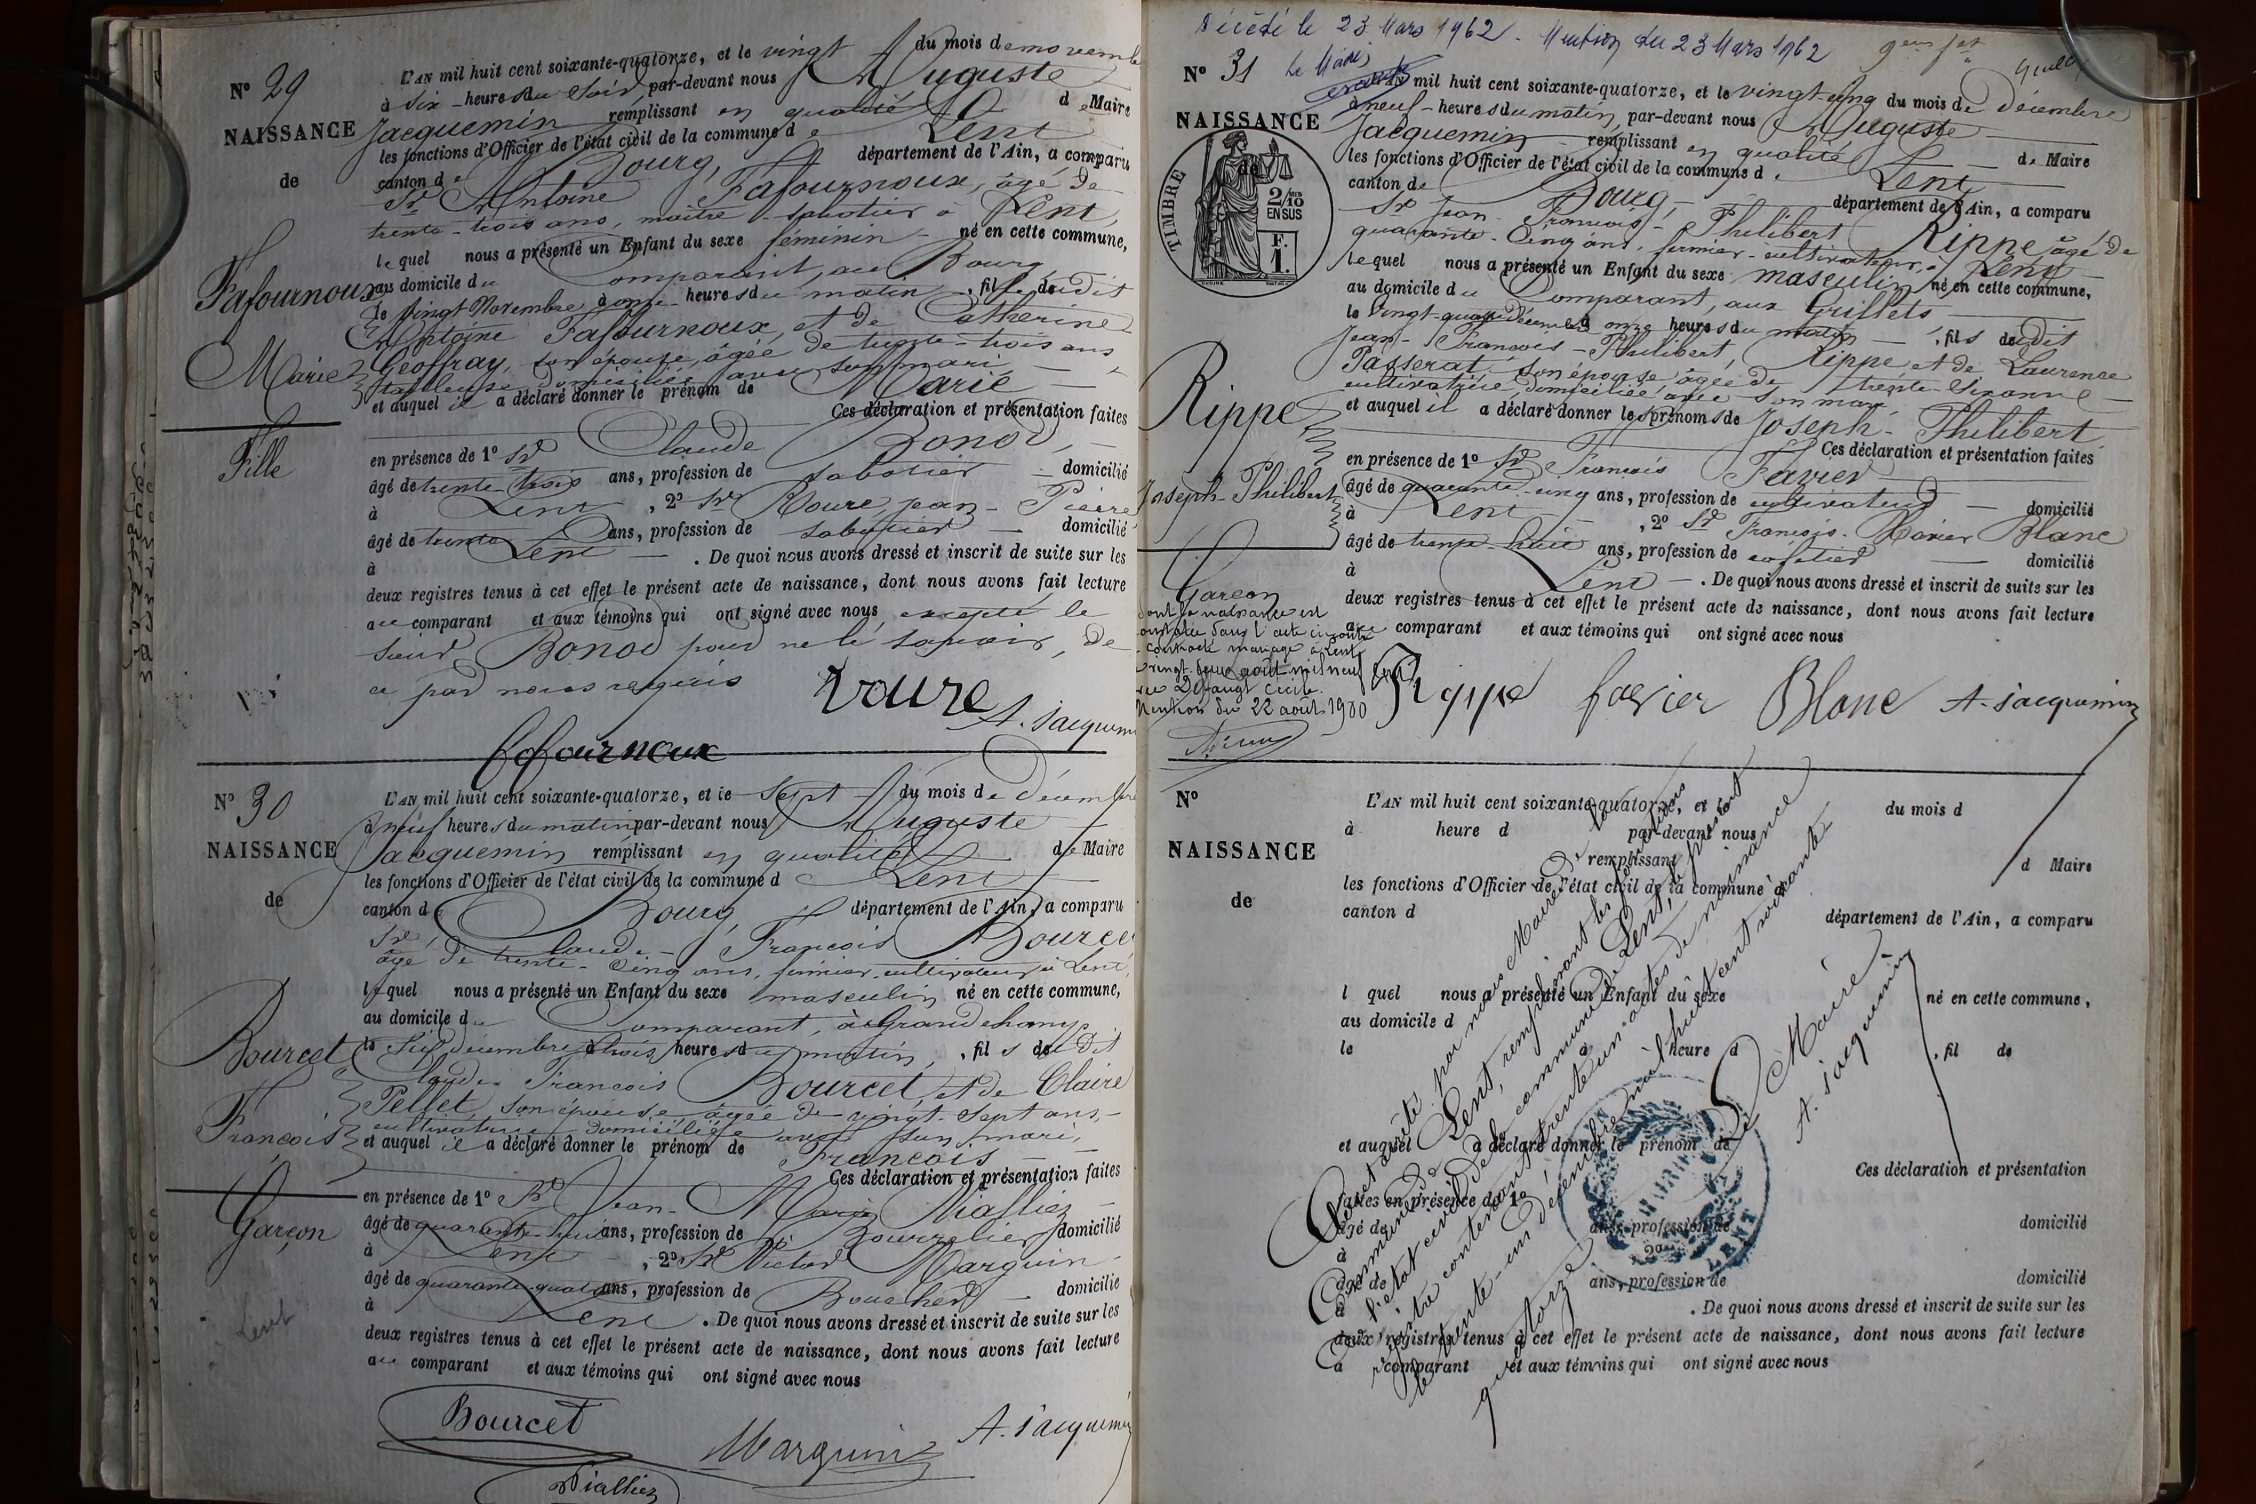 N° 29
NAISSANCE
de
Fafournoux
Marie
Fille
L'AN mil huit cent soixante-quatorze, et le vingt du mois de novembre
à six heures du soir, par-devant nous Auguste
Jacquemin remplissant en qualité de Maire
les fonctions d'Officier de l'état civil de la commune de Lent
canton de Bourg, département de l'Ain, a comparu
Sr Antoine Fafournoux, âgé de
trente-trois ans, maître sabotier à Lent,
lequel nous a présenté un Enfant du sexe féminin né en cette commune,
au domicile du comparant, au Bourg
le vingt Novembre à onze heures du matin, fille dudit
Antoine Fafournoux, et de Catherine
Geoffray, son épouse, âgée de trente-trois ans,
domiciliée avec son mari
et auquel il a déclaré donner le prénom de Marie
Ces déclaration et présentation faites
en présence de 1° Sr Claude Bonod,
âgé de trente-trois ans, profession de sabotier domicilié
à Lent, 2° Sr Roure, jean-Pierre
âgé de trente ans, profession de sabotier domicilié
à Lent. De quoi nous avons dressé et inscrit de suite sur les
deux registres tenus à cet effet le présent acte de naissance, dont nous avons fait lecture
au comparant et aux témoins qui ont signé avec nous, excepté le
sieur Bonod pour ne le savoir, de
ce par nous requis
Roure
A. jacquemin
fafournoux
N° 30
NAISSANCE
de
Bourcet
François
Garçon
Lent
L'AN mil huit cent soixante-quatorze, et le Sept du mois de décembre
à neuf heures du matin par-devant nous Auguste
Jacquemin remplissant en qualité de Maire
les fonctions d'Officier de l'état civil de la commune d Lent
canton de Bourg, département de l'Ain, a comparu
Sr Claude-François Bourcet
âgé de trente-cinq ans, fermier-cultivateur à Lent,
lequel nous a présenté un Enfant du sexe masculin né en cette commune,
au domicile du Comparant, à Grandchamp
le Six décembre à trois heures du matin, fils dudit
Claude François Bourcet, et de Claire
Pellet, son épouse âgée de vingt-sept ans,
cultivatrice domiciliée avec son mari,
et auquel il a déclaré donner le prénom de François
Ces déclaration et présentation faites
en présence de 1° Sr Jean-Marie Vialliez
âgé de quarante-six ans, profession de Bourrelier domicilié
à Lent, 2° Sr Victor Marguin
âgé de quarante-quatre ans, profession de Boucher domicilié
à Lent. De quoi nous avons dressé et inscrit de suite sur les
deux registres tenus à cet effet le présent acte de naissance, dont nous avons fait lecture
au comparant et aux témoins qui ont signé avec nous
Bourcet
Marguin
A. jacquemin
Vialliez
Décédé le 23 Mars 1962. Mention du 23 Mars 1962
Le Maire,
N° 31
NAISSANCE
de
TIMBRE
2/10
EN SUS
F.
1.
Rippe
Joseph-Philibert
Garçon
dont la naissance est
constatée dans l'acte ci-contre
a contracté mariage à Lent
le vingt-deux août mil neuf cent
avec Cécile.
Mention du 22 août 1900
L'AN mil huit cent soixante-quatorze, et le vingt-cinq du mois de Décembre
à neuf heures du matin, par-devant nous Auguste
Jacquemin remplissant en qualité de Maire
les fonctions d'Officier de l'état civil de la commune d Lent
canton de Bourg, département de l'Ain, a comparu
Sr Jean-François-Philibert Rippe âgé de
quarante-cinq ans, fermier-cultivateur à Lent
lequel nous a présenté un Enfant du sexe masculin né en cette commune,
au domicile du Comparant, aux Grillets
le vingt-quatre décembre à onze heures du matin, fils dudit
Jean-François-Philibert Rippe et de Laurence
Passerat, son épouse, âgée de trente-six ans
cultivatrice domiciliée avec son mari
et auquel il a déclaré donner les prénoms de Joseph-Philibert
Ces déclaration et présentation faites
en présence de 1° Sr François Favier
âgé de quarante-cinq ans, profession de cultivateur domicilié
à Lent, 2° Sr François-Xavier Blanc
âgé de trente-huit ans, profession de domicilié
à Lent. De quoi nous avons dressé et inscrit de suite sur les
deux registres tenus à cet effet le présent acte de naissance, dont nous avons fait lecture
au comparant et aux témoins qui ont signé avec nous
Rippe favier Blanc A. jacquemin
N°
NAISSANCE
de
L'AN mil huit cent soixante-quatorze, et le du mois d
à heure d par-devant nous
remplissant d Maire
les fonctions d'Officier de l'état civil de la commune d
canton d département de l'Ain, a comparu
l quel nous a présenté un Enfant du sexe né en cette commune,
au domicile d
le à heure d , fil de
et auquel a déclaré donner le prénom de
Ces déclaration et présentation
faites en présence de 1°
âgé de ans, profession de domicilié
à 2°
âgé de ans, profession de domicilié
à . De quoi nous avons dressé et inscrit de suite sur les
deux registres tenus à cet effet le présent acte de naissance, dont nous avons fait lecture
a comparant et aux témoins qui ont signé avec nous
Clos et arrêté par nous Maire de la
Commune de Lent, remplissant les fonctions
de l'état civil de la commune de Lent, le présent
registre contenant trente un actes de naissance
le trente-un décembre mil huit cent soixante
quatorze.
Le Maire
A. jacquemin
MAIRIE
LENT